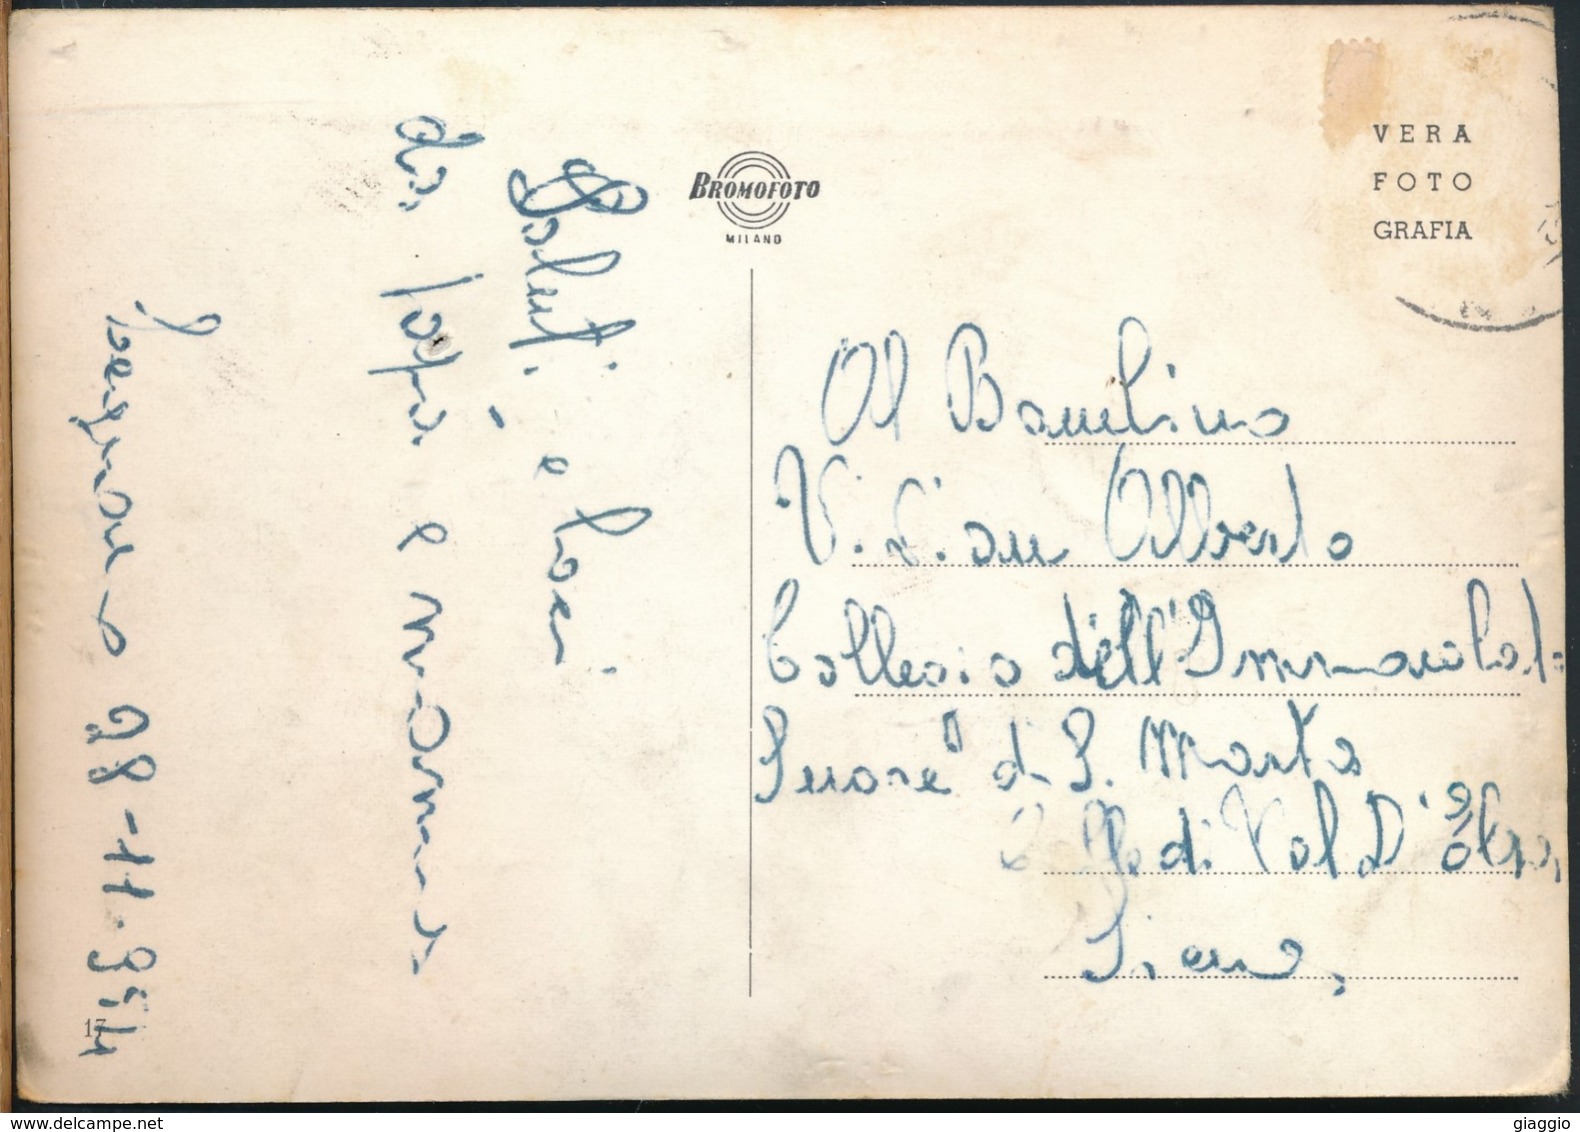 Saluti e baci
da papa e mamma
28-11-954
17
BROMOFOTO
MILANO
VERA
FOTO
GRAFIA
Al Bambino
Alberto
Collegio dell'Immacolata
Suore di S. Marta
Colle di Val D'Elsa,
Siena,
giaggio
www.delcampe.net